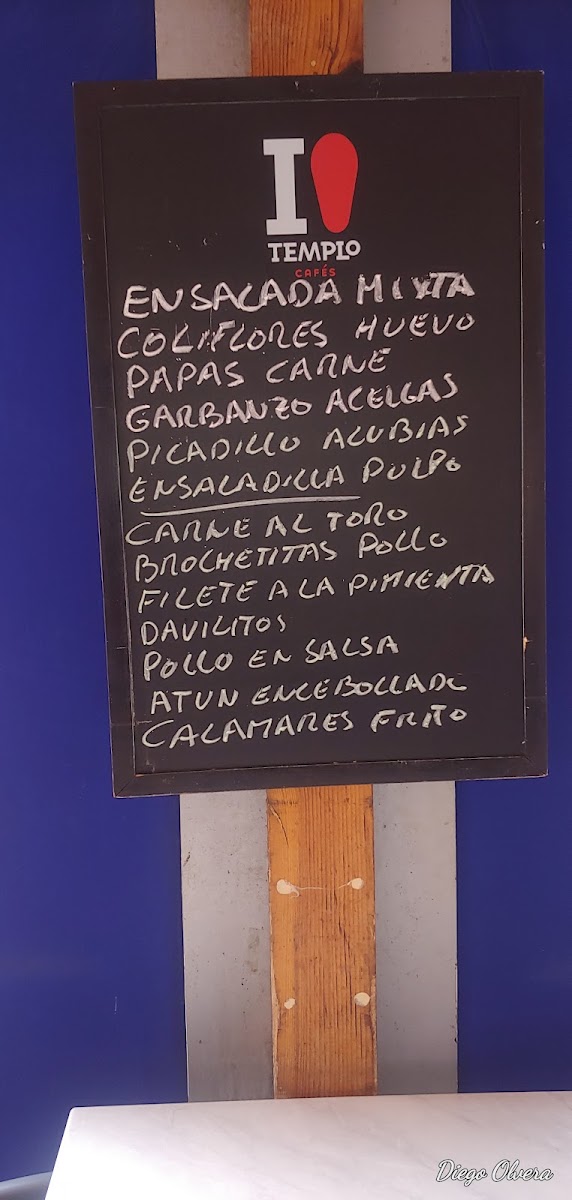 I
TEMPLO
CAFÉS
ENSALADA MIXTA
COLIFLORES HUEVO
PAPAS CARNE
GARBANZO ACELGAS
PICADILLO ALUBIAS
ENSALADILLA PULPO
CARNE AL TORO
BROCHETITAS POLLO
FILETE A LA PIMIENTA
DAVILITOS
POLLO EN SALSA
ATUN ENCEBOLLADO
CALAMARES FRITO
Diego Olvera